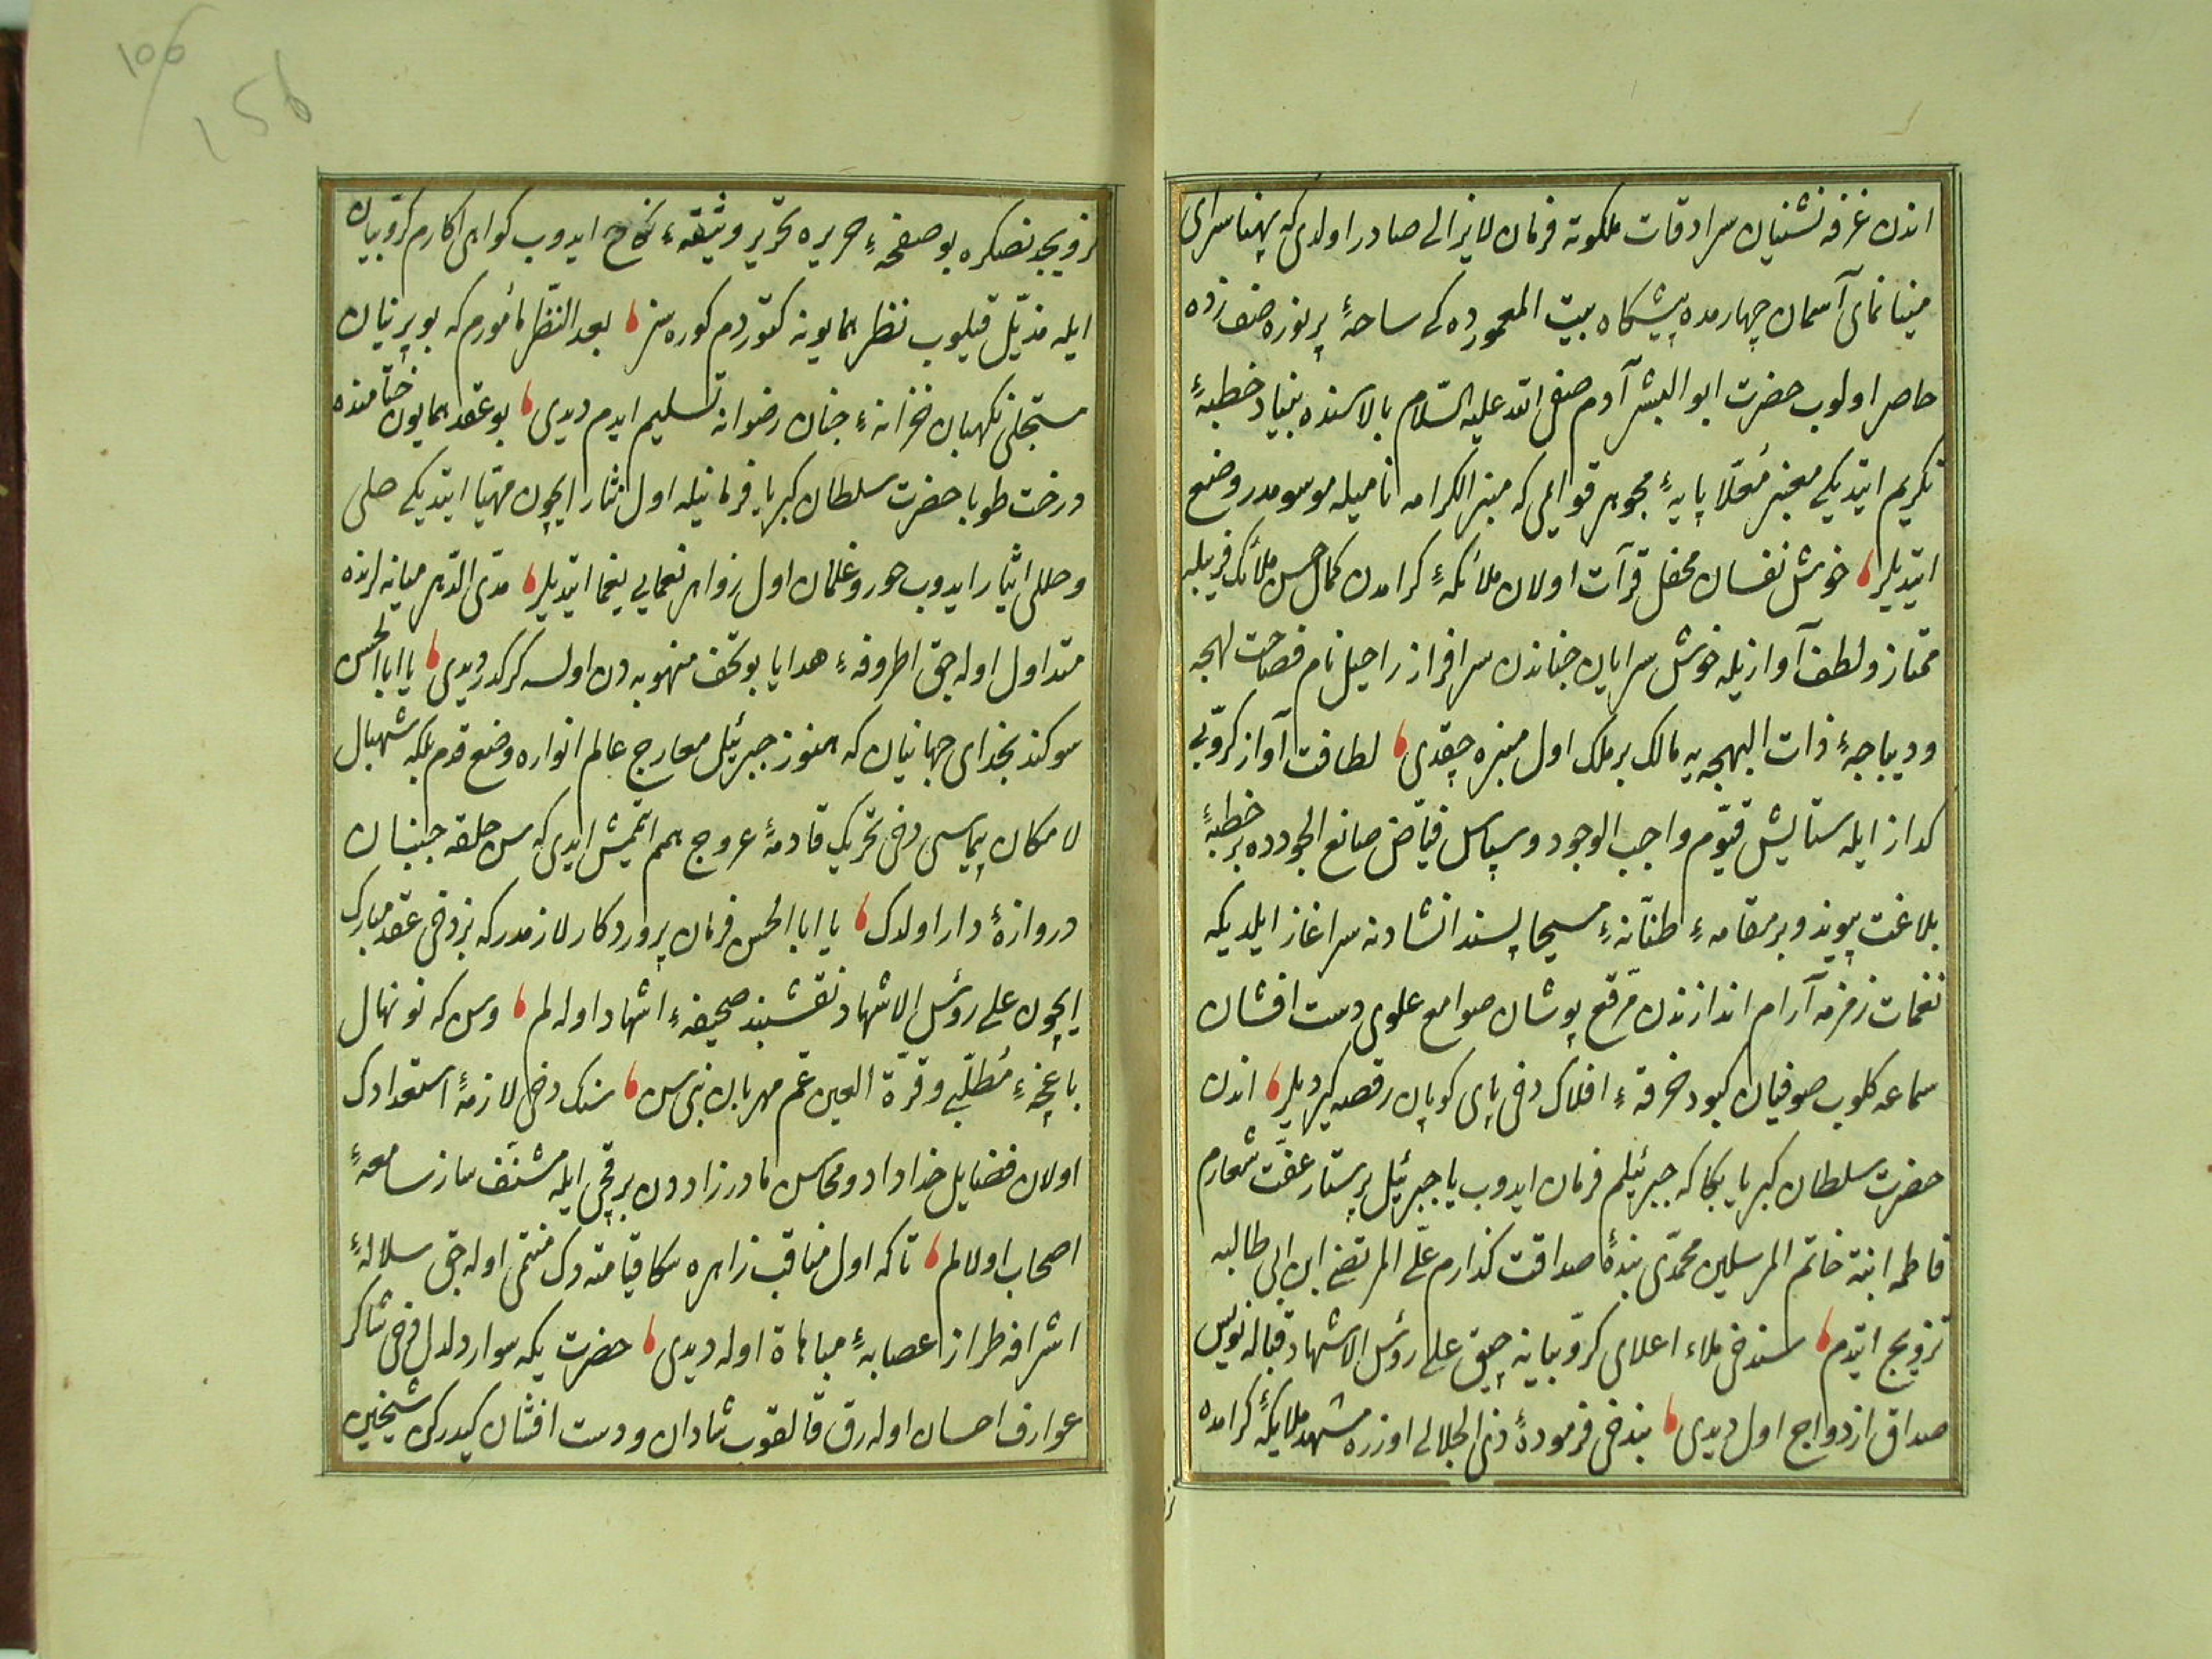 اندن غرفه نشنیان سرادقات ملکوته فرمان لایزالی صادر اولدی که پهنا سرای
مینا نمای آسمان چهارمده پیشگاه بیت المعموردہ کی ساحهٔ پر نوره صف زده
حاضر اولوب حضرت ابو البشر آدم صفی الله علیه السّلام بالاسنده بنیاد خطبهٔ
تکریم ایتدیکی معنبر مُعلّا پایهٔ مجوهر قوایمی که منبر الکرامه نامیله موسومدر وضع
ایتدیلر خوش نفسان محفل قرآت اولان ملائکهٔ کرامدن کمال حسن ملائک فریبله
ممتاز و لطف آوازیله خوش سرایان جناندن سرافراز راحیل نام فصاحت لهجه
و دیباجهٔ ذات البهجه یه مالک بر ملک اول منبره چقدی لطافت آواز کرّوبی
کداز ایله ستایش قیّوم واجب الوجود و سپاس فیّاض صانع الجودده بر خطبهٔ
بلاغت پیوند و بر مقامهٔ طنّانهٔ مسیحا پسند انشادنه سراغاز ایلدیکه
نغمات زمزمه آرام اندازندن مرّقع پوشان صوامع علوی دست افشان
سماعه کلوب صوفیان کبود خرقهٔ افلاک دخی پای کوبان رقصه کیردیلر اندن
حضرت سلطان کبریا بکا که جبرئیلم فرمان ایدوب یا جبرئیل پرستار عفّت شعارم
فاطمه ابنة خاتم المرسلین محمّدی بندهٔ صداقت کذارم علّی المرتضی ابن ابی طالبه
تزویج ایتدم سندخی ملاء اعلای کرّوبیانه چیق علی رؤس الاشهاد قباله نویس
صداق ازدواج اول دیدی بندخی فرمودهٔ ذی الجلالی اوزره مشهد ملایکهٔ کرامده
تزویجدنصکره بو صفحهٔ حریره تحریر وثیقهٔ نکاح ایدوب کواهی اکارم کرّوبیان
ایله مذیّل قیلوب نظر همایونه کتوردم کوره سز بعد النّظر مأمورم که بو پرنیان
مستجلی نکهبان خزانهٔ جنان رضوانه تسلیم ایدم دیدی بو عقد همایون ختامنده
درخت طوبا حضرت سلطان کبریا فرمانیله اول نثار ایچون مهیّا ایتدیکی حلی
و حللی ایثار ایدوب حور و غلمان اول زواهر نعمایی یغما ایتدیلر مدّی الدّهر میانه لرنده
متداول اوله جق اطروفهٔ هدایا بو تحف منهوبه دن اولسه کرکدر دیدی یا ابا الحسن
سوکند بخدای جهانیان که هنوز جبرئیل معارج عالم انواره وضع قدم بلکه شهبال
لامکان پیماسی دخی تحریک قادمهٔ عروج هم ایتمیش ایدی که سن حلقه جنبان
دروازهٔ دار اولدک یا ابا الحسن فرمان پروردکار لازمدر که بزدخی عقد مبارک
ایچون علی رؤس الاشهاد نقشبند صحیفهٔ اشهاد اوله لم و سن که نو نهال
باغچهٔ مُطلّبی و قرّة العین عمّ مهربان نبی سن سنک دخی لازمهٔ استعدادک
اولان فضایل خداداد و محاسن مادرزاددن بر قچی ایله مشنّف ساز سامعهٔ
اصحاب اولالم تا که اول مناقب زاهره سکا قیامته دک منتمی اوله جق سلالهٔ
اشرافه طراز عصابهٔ مباهاة اوله دیدی حضرت یکه سوار دلدل دخی شاکر
عوارف احسان اوله رق قالقوب شادان و دست افشان کیدرکن شیخین